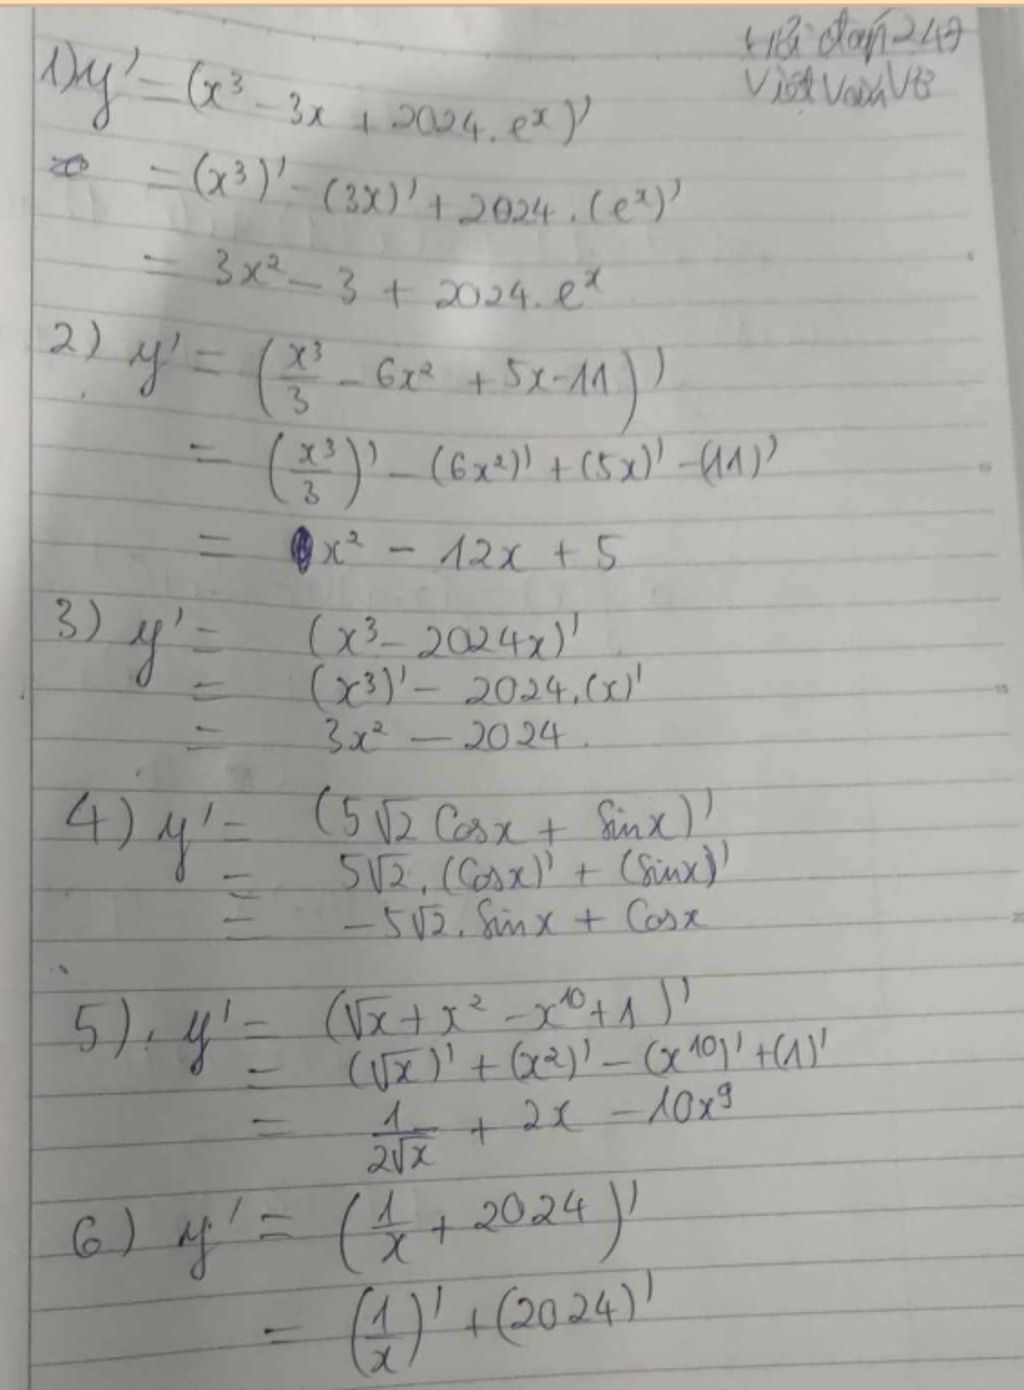 Hỏi đáp 247
1) y' = (x³ - 3x + 2024. eˣ)'
= (x³)' - (3x)' + 2024. (eˣ)'
= 3x² - 3 + 2024. eˣ
2) y' = (x³/3 - 6x² + 5x - 11)'
= (x³/3)' - (6x²)' + (5x)' - (11)'
= x² - 12x + 5
3) y' = (x³ - 2024x)'
= (x³)' - 2024.(x)'
= 3x² - 2024.
4) y' = (5√2 Cosx + Sinx)'
= 5√2. (Cosx)' + (Sinx)'
= -5√2. Sinx + Cosx
5). y' = (√x + x² - x¹⁰ + 1)'
= (√x)' + (x²)' - (x¹⁰)' + (1)'
= 1/(2√x) + 2x - 10x⁹
6) y' = (1/x + 2024)'
= (1/x)' + (2024)'